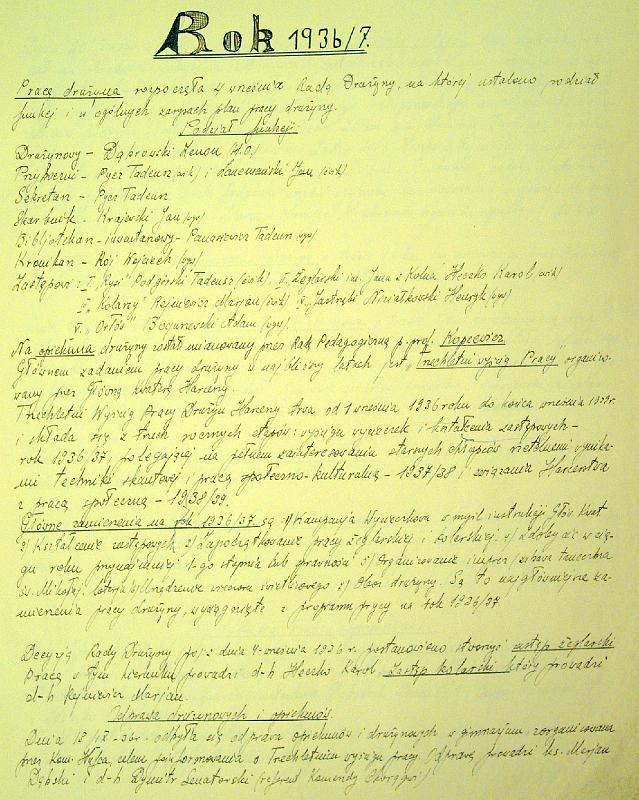 Rok 1936/7.
Pracę drużyna rozpoczęła 4 września Radą Drużyny, na której ustalono podział
funkcji i w ogólnych zarysach plan pracy drużyny.
Podział funkcji:
Drużynowy – Dąbrowski Zenon (H.O.)
Przyboczni – Pyez Tadeusz (ćwik) i Jan (ćwik)
Sekretarz – Pyez Tadeusz
Skarbnik – Krajewski Jan (wyw)
Bibljotekarz – inwentarzowy – Tadeusz (wyw)
Kronikarz – Rój Wojciech (wyw)
Zastępowi: I „Rysi" Podgórski Tadeusz (ćwik), II „Żeglarski im. Jana z Kolna" Heczko Karol (ćwik)
III „Kolarzy" Rejniewicz Marjan (ćwik) IV „Jastrzębi" Niwiatkowski Henryk (wyw)
V „Orłów" Adam (wyw).
Na opiekuna drużyny został mianowany przez Radę Pedagogiczną p. prof. Kopcewicz
Głównem zadaniem pracy drużyny w najbliższych latach jest „Trzechletni wyścig Pracy" organizo-
wany przez Główną Kwaterę Harcerzy.
Trzechletni Wyścig Pracy Drużyn Harcerzy trwa od 1 września 1936 roku do końca września 1939r.
i składa się z trzech rocznych etapów: wyścigu wycieczek i kształcenia zastępowych –
rok 1936/37, polegającej na pełnem zainteresowaniu starszych chłopców rzetelnemi wynika-
mi techniki skautowej i pracą społeczno-kulturalną – 1937/38 i związania Harcerstwa
z pracą społeczną – 1938/39.
Główne zamierzenia na rok 1936/37 są: 1) Kampanja Wycieczkowa w myśl instrukcji Głów. Kwat.
2) Kształcenie zastępowych 3) Zapoczątkowanie pracy żeglarskiej i kolarskiej. 4) Zdobycie w cią-
gu roku przynajmniej 1-go stopnia lub sprawności 5) Organizowanie imprez (zabawa taneczna
św. Mikołaj, loterja) 6) Urządzenie wieczoru świetlicowego 7) Obóz drużyny. Są to najgłówniejsze za-
mierzenia pracy drużyny, wyciągnięte z programu pracy na rok 1936/37
Decyzją Rady Drużyny z dnia 4-września 1936 r. postanowiono stworzyć zastęp żeglarski
Pracę w tym kierunku prowadzi d-h Heczko Karol, Zastęp kolarski który prowadzi
d-h Rejniewicz Marjan.
Odprawa drużynowych i opiekunów.
Dnia odbyła się odprawa opiekunów i drużynowych w gimnazjum, zorganizowana
przez Kom. Hufca, celem poinformowania o Trzechletnim wyścigu pracy. Odprawę prowadzi ks. Marjan
Dębski i d-h Dymitr Senatorski (referent Komendy Chorągwi)